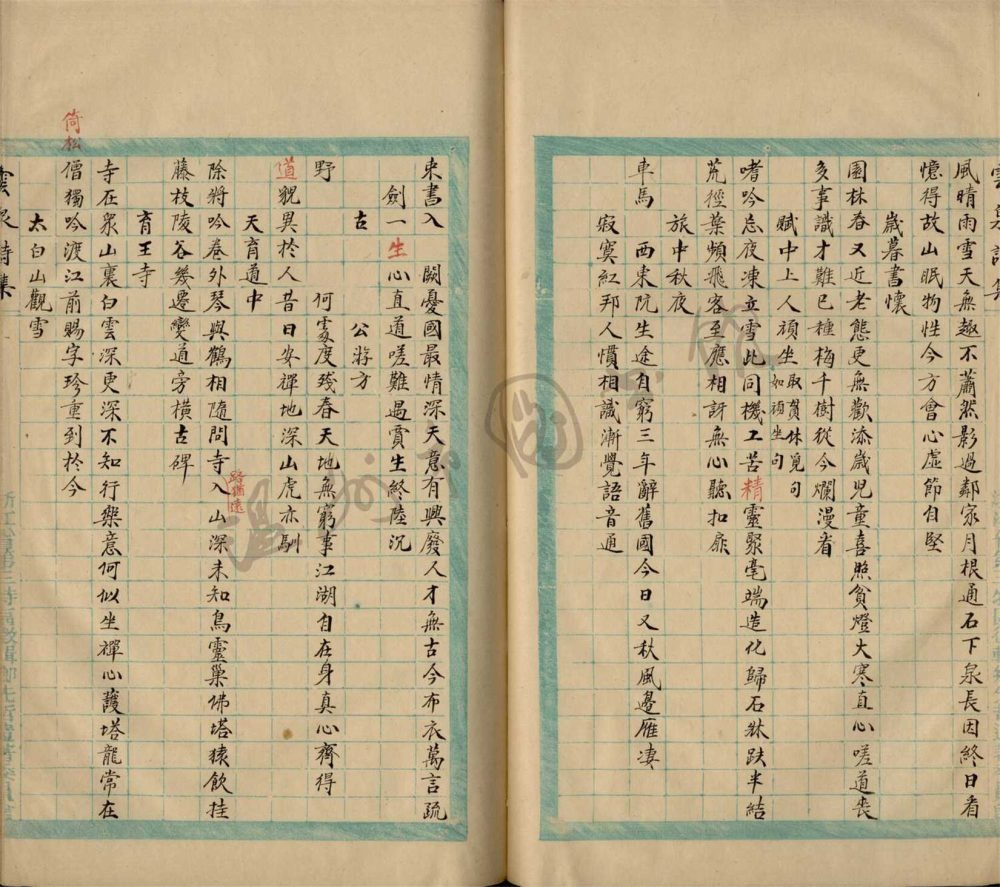 風晴雨雪天無趣不蕭然影過鄰家月根通石下泉長因終日看
憶得故山眠物性今方會心虛節自堅
歲暮書懷
園林春又近老態更無歡添歲兒童喜照貧燈火寒直心嗟道喪
多事識才難已種梅千樹從今爛漫看
賦中上人頑坐取賈休覓句如頑坐句
嗜吟忘夜凍立雪此同機工苦精靈聚毫端造化歸石牀趺半結
荒徑葉頻飛客至應相訝無心聽扣扉
旅中秋夜
車馬 西東阮生途自窮三年辭舊國今日又秋風邊雁凄
寂寞紅邦人慣相識漸覺語音通
束書入 闕憂國最情深天意有興廢人才無古今布衣萬言疏
劍一生心直道嗟難遇賈生終陸沉
古 公游方
野 何處度殘春天地無窮事江湖自在身真心齊得
道貌異於人昔日安禪地深山虎亦馴
天育道中
除將吟卷外琴與鶴相隨問寺入山深未知鳥靈巢佛塔猿飲挂
路猶遠
藤枝陵谷幾遷變道旁橫古碑
育王寺
寺在泉山裏白雲深更深不知行樂意何似坐禪心護塔龍常在
倚松
僧獨吟渡江前賜字珍重到於今
太白山觀雪
雲泉詩集